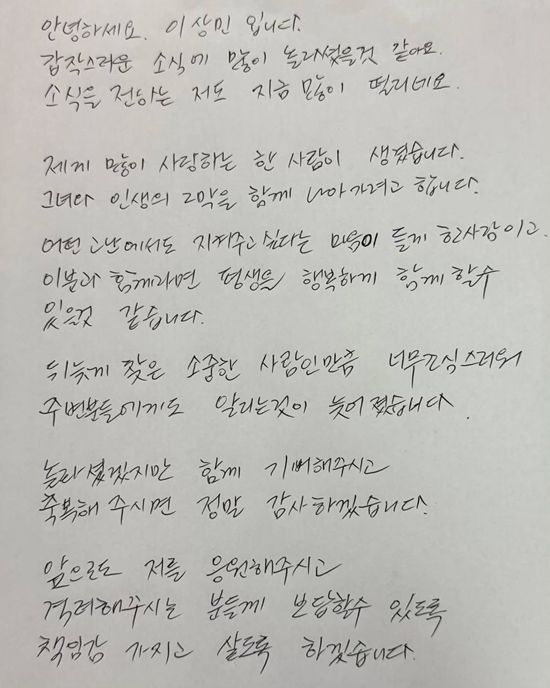 안녕하세요. 이상민 입니다.
갑작스러운 소식에 많이 놀라셨을것 같아요.
소식을 전하는 저도 지금 많이 떨리네요.
제게 많이 사랑하는 한 사람이 생겼습니다.
그녀와 인생의 2막을 함께 나아가려고 합니다.
어떤 고난에서도 지켜주고싶다는 마음이 들게 한사람이고.
이분과 함께라면 평생을 행복하게 함께 할수
있을것 같습니다.
뒤늦게 찾은 소중한 사람인만큼 너무조심스러워
주변분들에게도 알리는것이 늦어졌습니다.
놀라셨겠지만 함께 기뻐해주시고
축복해 주시면 정말 감사하겠습니다.
앞으로도 저를 응원해주시고
격려해주시는 분들께 보답할수 있도록
책임감 가지고 살도록 하겠습니다.